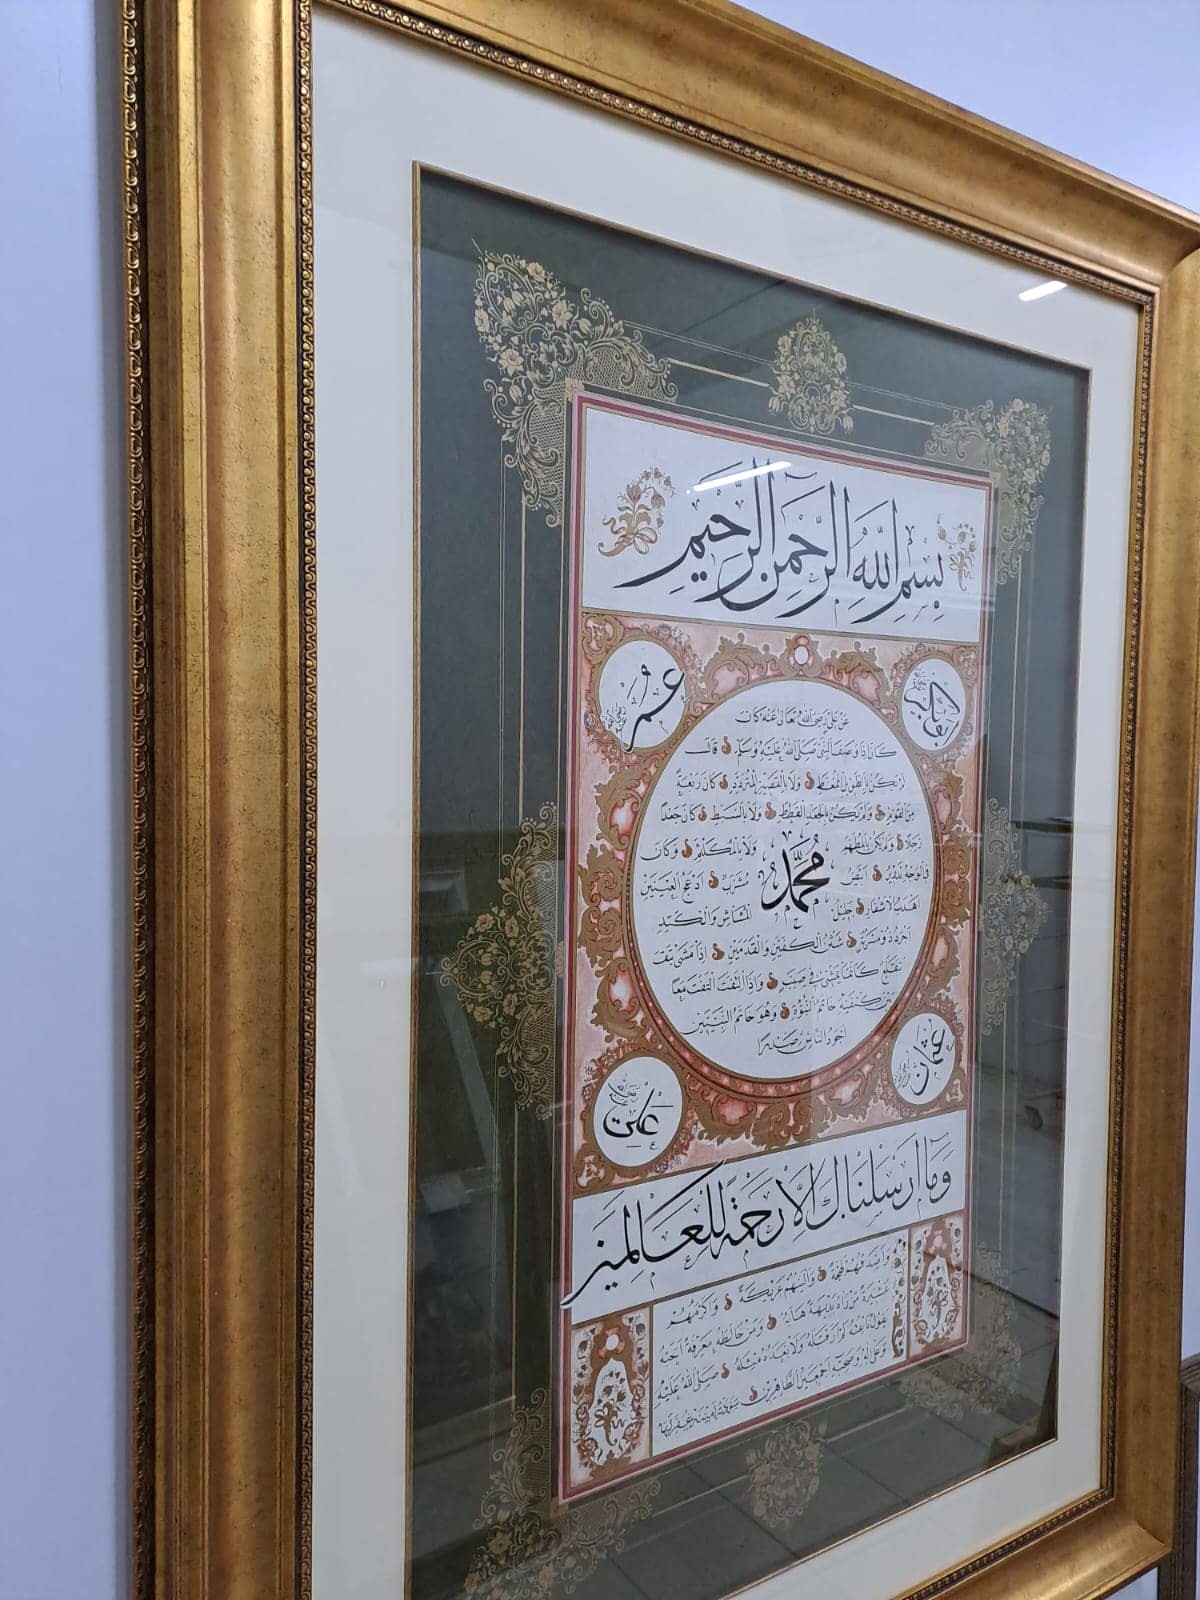 بِسْمِ اللّٰهِ الرَّحْمٰنِ الرَّحِيمِ
ابوبكر
عمر
عَنْ عَلِيٍّ رَضِيَ اللّٰهُ تَعَالٰى عَنْهُ كَانَ
اِذَا وَصَفَ النَّبِيَّ صَلَّى اللّٰهُ عَلَيْهِ وَسَلَّمَ قَالَ
لَمْ يَكُنْ بِالطَّوِيلِ الْمُمَغَّطِ وَلَا بِالْقَصِيرِ الْمُتَرَدِّدِ كَانَ رَبْعَةً
مِنَ الْقَوْمِ وَلَمْ يَكُنْ بِالْجَعْدِ الْقَطَطِ وَلَا بِالسَّبِطِ كَانَ جَعْدًا
رَجِلًا وَلَمْ يَكُنْ بِالْمُطَهَّمِ وَلَا بِالْمُكَلْثَمِ وَكَانَ
فِي الْوَجْهِ تَدْوِيرٌ اَبْيَضُ مُشْرَبٌ اَدْعَجُ الْعَيْنَيْنِ
مُحَمَّد
اَهْدَبُ الْاَشْفَارِ جَلِيلُ الْمُشَاشِ وَالْكَتَدِ
اَجْرَدُ ذُو مَسْرُبَةٍ شَثْنُ الْكَفَّيْنِ وَالْقَدَمَيْنِ اِذَا مَشٰى
يَتَقَلَّعُ كَاَنَّمَا يَمْشِي فِي صَبَبٍ وَاِذَا الْتَفَتَ الْتَفَتَ مَعًا
بَيْنَ كَتِفَيْهِ خَاتَمُ النُّبُوَّةِ وَهُوَ خَاتَمُ النَّبِيِّينَ
اَجْوَدُ النَّاسِ صَدْرًا
عثمان
علي
وَمَا اَرْسَلْنَاكَ اِلَّا رَحْمَةً لِلْعَالَمِينَ
وَاَصْدَقُهُمْ لَهْجَةً وَاَلْيَنُهُمْ عَرِيكَةً وَاَكْرَمُهُمْ
عَشِيرَةً مَنْ رَاٰهُ بَدِيهَةً هَابَهُ وَمَنْ خَالَطَهُ مَعْرِفَةً اَحَبَّهُ
يَقُولُ نَاعِتُهُ لَمْ اَرَ قَبْلَهُ وَلَا بَعْدَهُ مِثْلَهُ صَلَّى اللّٰهُ عَلَيْهِ
وَعَلٰى اٰلِهِ وَصَحْبِهِ اَجْمَعِينَ الطَّاهِرِينَ